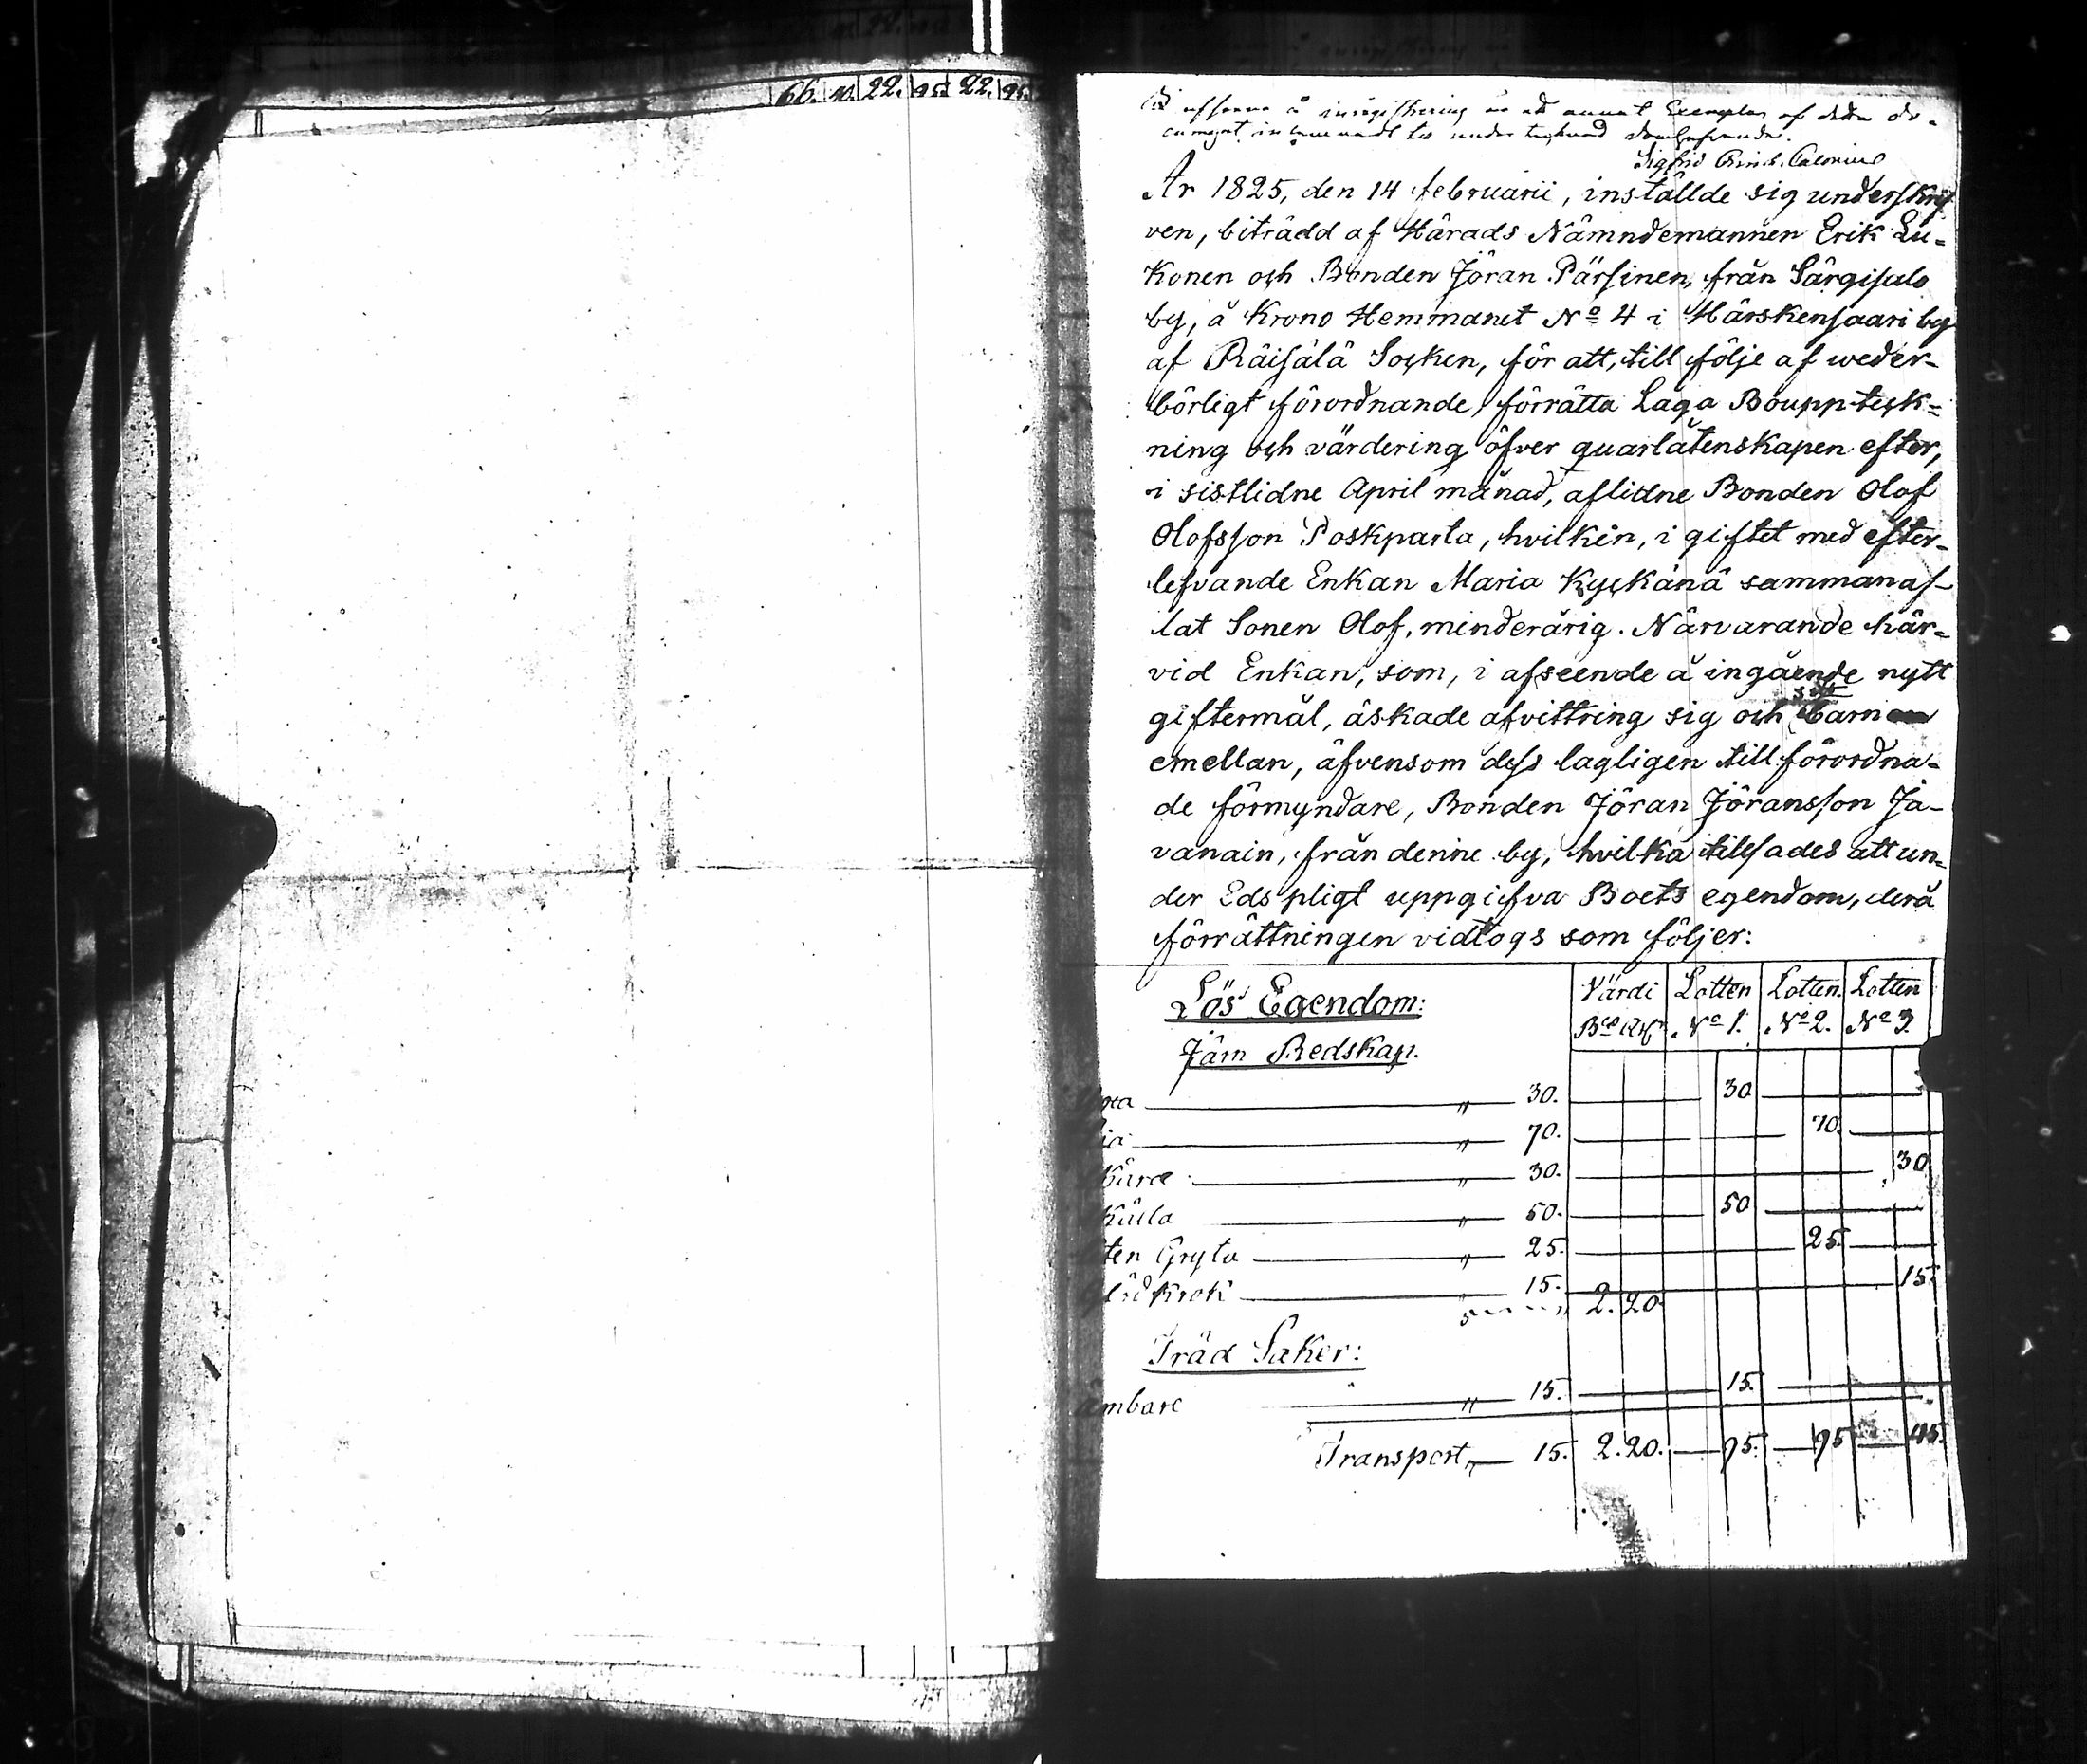 66. 10. 22. 95. 22. 95.
å inregistrering är ett annat Exemplar af detta do-
cument inlemnadt till undertecknad Domhafvande.
Sigfrid Calonius
År 1825, den 14 februarii, inställde sig underskrif
ven, biträdd af Härads Nämndemannen Erik Lu-
konen och Bonden Jöran Pärsinen, från Särgisalo
by, å Krono Hemmanet No 4 i Härskensaari by
af Räisälä Socken, för att, till följe af weder-
börligt förordnande, förrätta Laga Bouppteck-
ning och värdering öfver quarlåtenskapen efter,
i sistlidne April månad, aflidne Bonden Olof
Olofsson Poskparta, hvilken, i giftet med efter-
lefvande Enkan Maria Kyckänä sammanaf-
lat Sonen Olof, minderårig. Närvarande här-
vid Enkan, som, i afseende å ingående nytt
giftermål, äskade afvittring sig och sitt barn
emellan, äfvensom dess lagligen tillförordna-
de förmyndare, Bonden Jöran Jöransson Ja-
vanain, från denne by, hvilka tillsades att un-
der Eds pligt uppgifva Boets egendom, derå
förrättningen vidtogs som följer:
Lös Egendom: Värdi Lotten Lotten Lotten
Bco Rbl No 1. No 2. No 3.
Järn Redskap.
" 30. 30
" 70. 70.
" 30. 30
" 50. 50
ten Gryta " 25. 25.
krok " 15. 15.
2. 20.
Träd Saker:
ämbare " 15. 15.
Transport " 15. 2. 20. 95. 95 45.